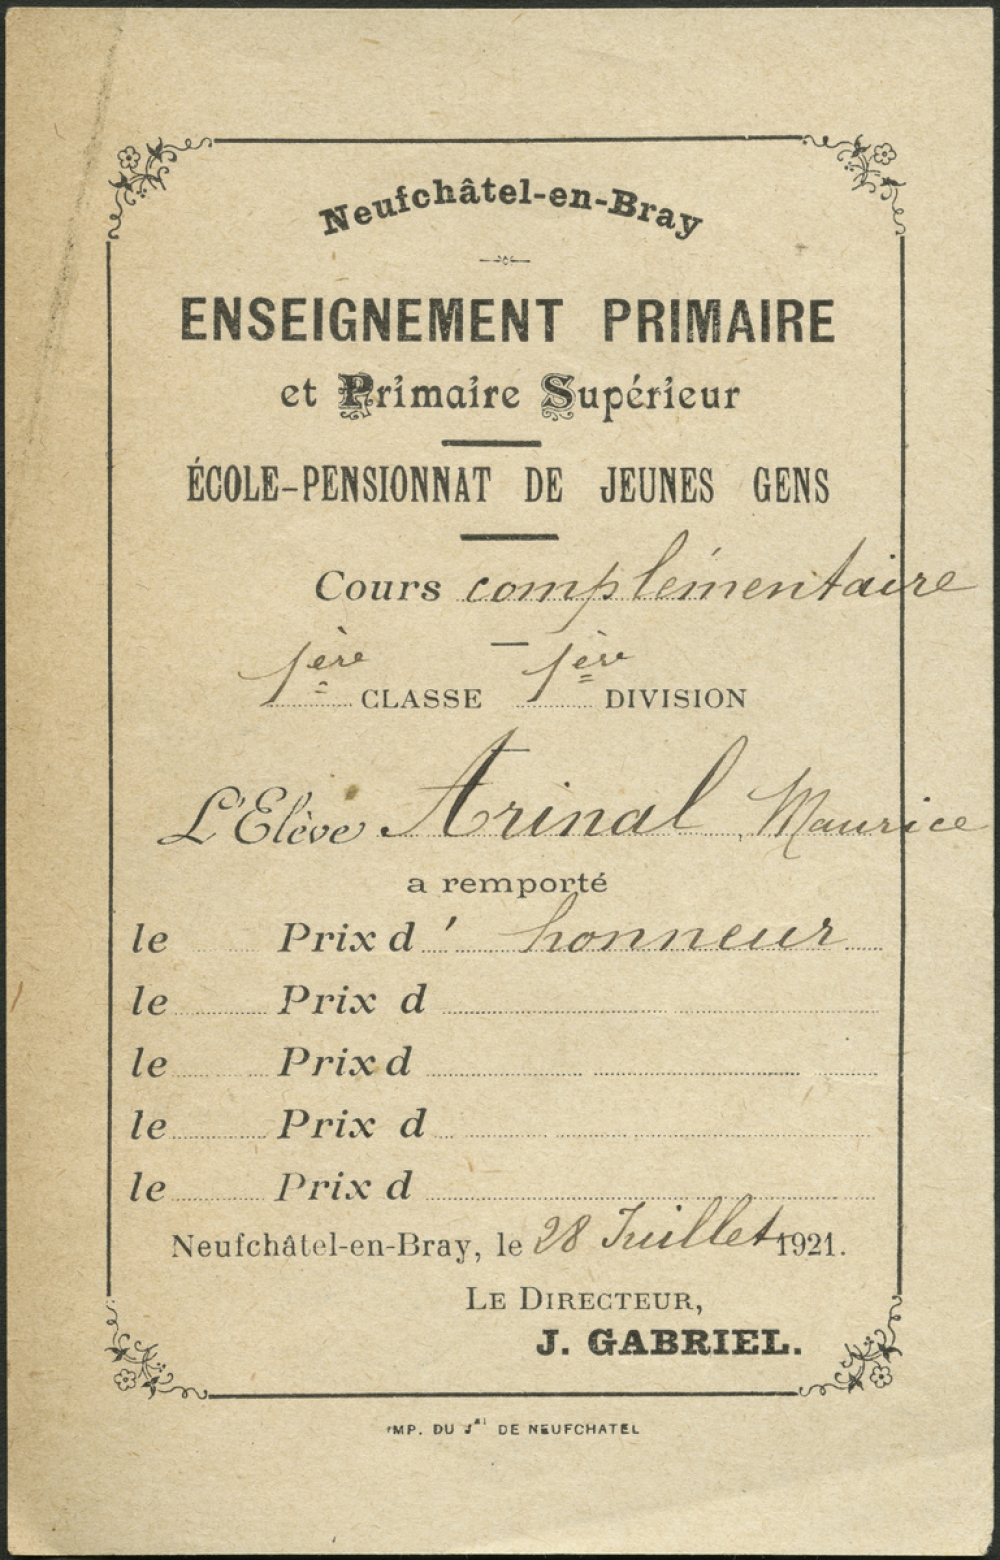 Neufchâtel-en-Bray
ENSEIGNEMENT PRIMAIRE
et Primaire Supérieur
ÉCOLE-PENSIONNAT DE JEUNES GENS
Cours complémentaire
1ère CLASSE 1ère DIVISION
L'Elève Arinal Maurice
a remporté
le Prix d' honneur
le Prix d
le Prix d
le Prix d
le Prix d
Neufchâtel-en-Bray, le 28 Juillet 1921.
LE DIRECTEUR,
J. GABRIEL.
IMP. DU Jal DE NEUFCHATEL